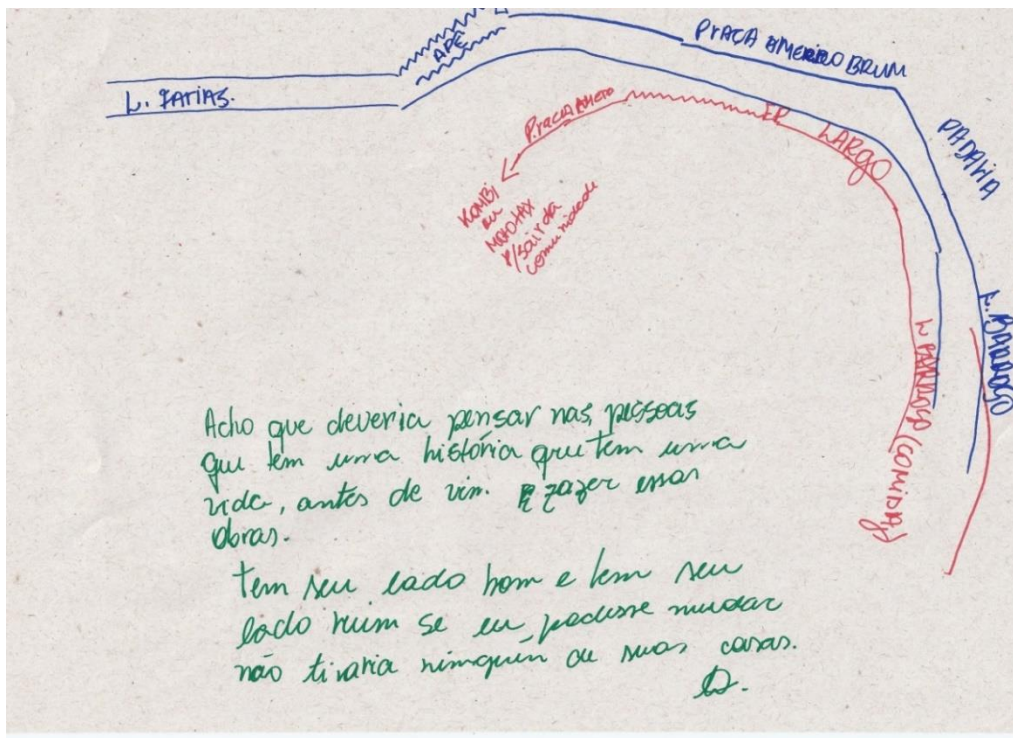 L. FARIAS.
APE
PRAÇA AMERICO BRUM
PADARIA
L. BARROSO
Praça
LARGO
KOMBI
ou
MOTOTAX
P/Sair da
comunidade
L BARROSO (COMIDA)
Acho que deveria pensar nas pessoas
que tem uma história que tem uma
vida, antes de vim. fazer essas
obras.
Tem seu lado bom e tem seu
lado ruim se eu podesse mudar
não tiraria nimguén de suas casas.